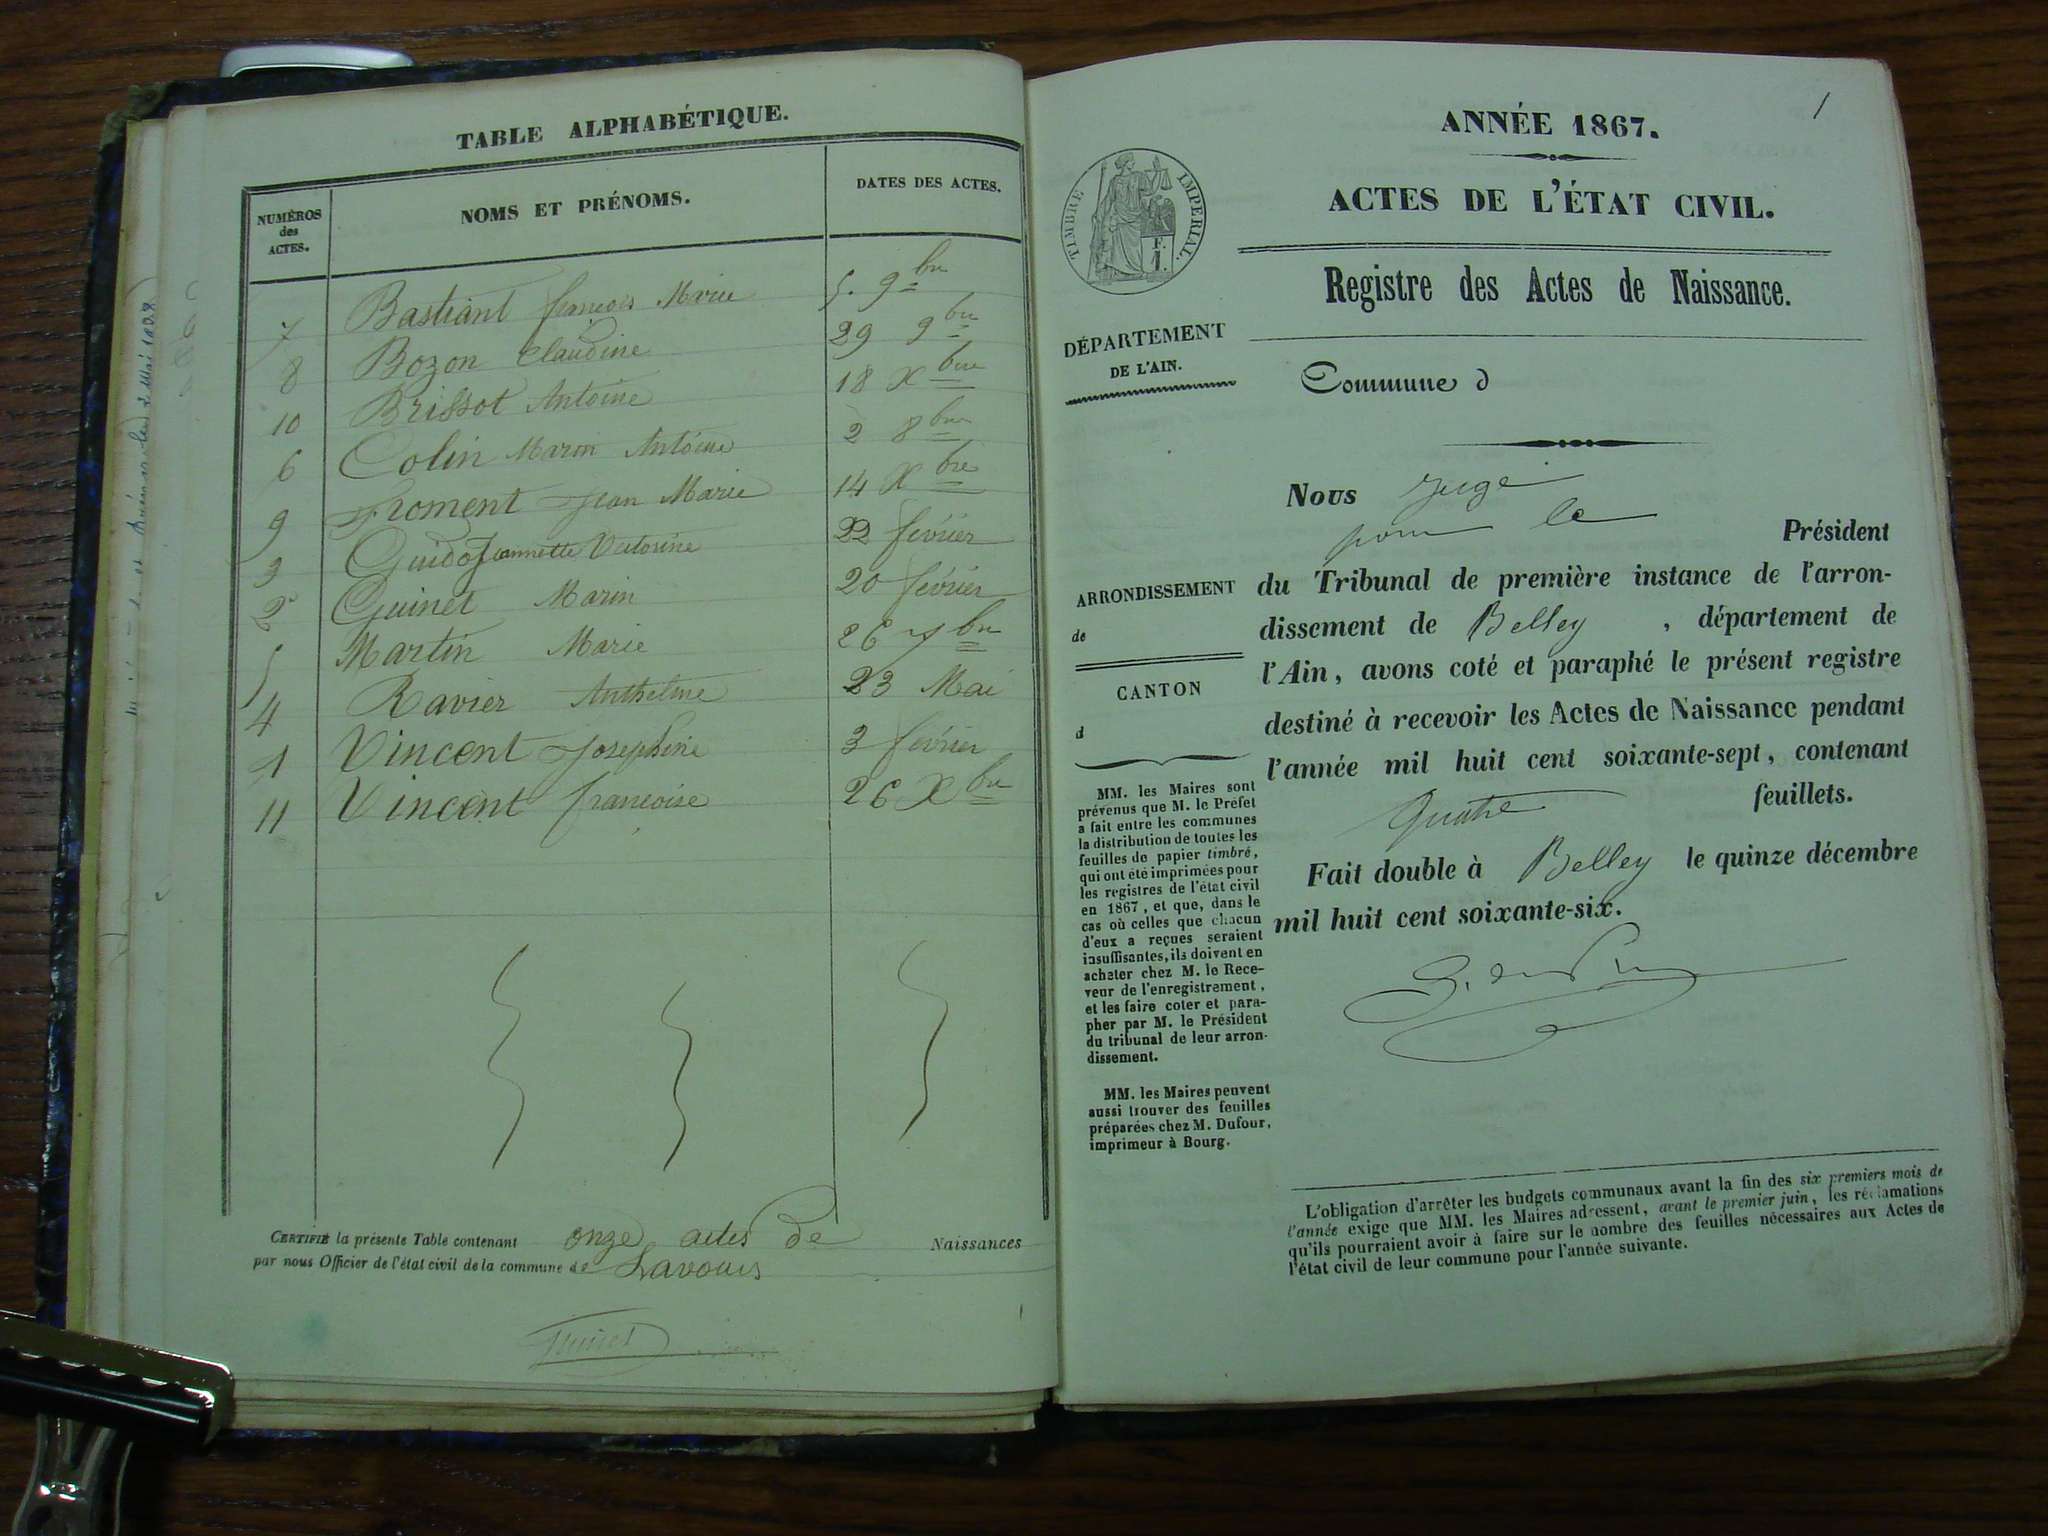 TABLE ALPHABÉTIQUE.
NUMÉROS des ACTES.
NOMS ET PRÉNOMS.
DATES DES ACTES.
7 Bastiant françois Marie 5. 9bre
8 Bozon Claudine 29 9bre
10 Brissot Antoine 18 Xbre
6 Colin Marin Antoine 2 8bre
9 Froment Jean Marie 14 Xbre
3 Guido Jeannette Victorine 22 février
2 Guinet Marin 20 février
5 Martin Marie 26 7bre
4 Ravier Anthelme 23 Mai
1 Vincent Josephine 3 février
11 Vincent françoise 26 Xbre
CERTIFIÉ la présente Table contenant onze actes De Naissances
par nous Officier de l'état civil de la commune de Lavours
1
ANNÉE 1867.
ACTES DE L'ÉTAT CIVIL.
TIMBRE IMPÉRIAL.
F.
1.
Registre des Actes de Naissance.
DÉPARTEMENT
DE L'AIN.
Commune d
Nous juge
pour le Président
ARRONDISSEMENT
de
CANTON
d
du Tribunal de première instance de l'arron-
dissement de Belley, département de
l'Ain, avons coté et paraphé le présent registre
destiné à recevoir les Actes de Naissance pendant
l'année mil huit cent soixante-sept, contenant
quatre feuillets.
Fait double à Belley le quinze décembre
mil huit cent soixante-six.
MM. les Maires sont
prévenus que M. le Préfet
a fait entre les communes
la distribution de toutes les
feuilles de papier timbré,
qui ont été imprimées pour
les registres de l'état civil
en 1867, et que, dans le
cas où celles que chacun
d'eux a reçues seraient
insuffisantes, ils doivent en
acheter chez M. le Rece-
veur de l'enregistrement,
et les faire coter et para-
pher par M. le Président
du tribunal de leur arron-
dissement.
MM. les Maires peuvent
aussi trouver des feuilles
préparées chez M. Dufour,
imprimeur à Bourg.
L'obligation d'arrêter les budgets communaux avant la fin des six premiers mois de
l'année exige que MM. les Maires adressent, avant le premier juin, les réclamations
qu'ils pourraient avoir à faire sur le nombre des feuilles nécessaires aux Actes de
l'état civil de leur commune pour l'année suivante.